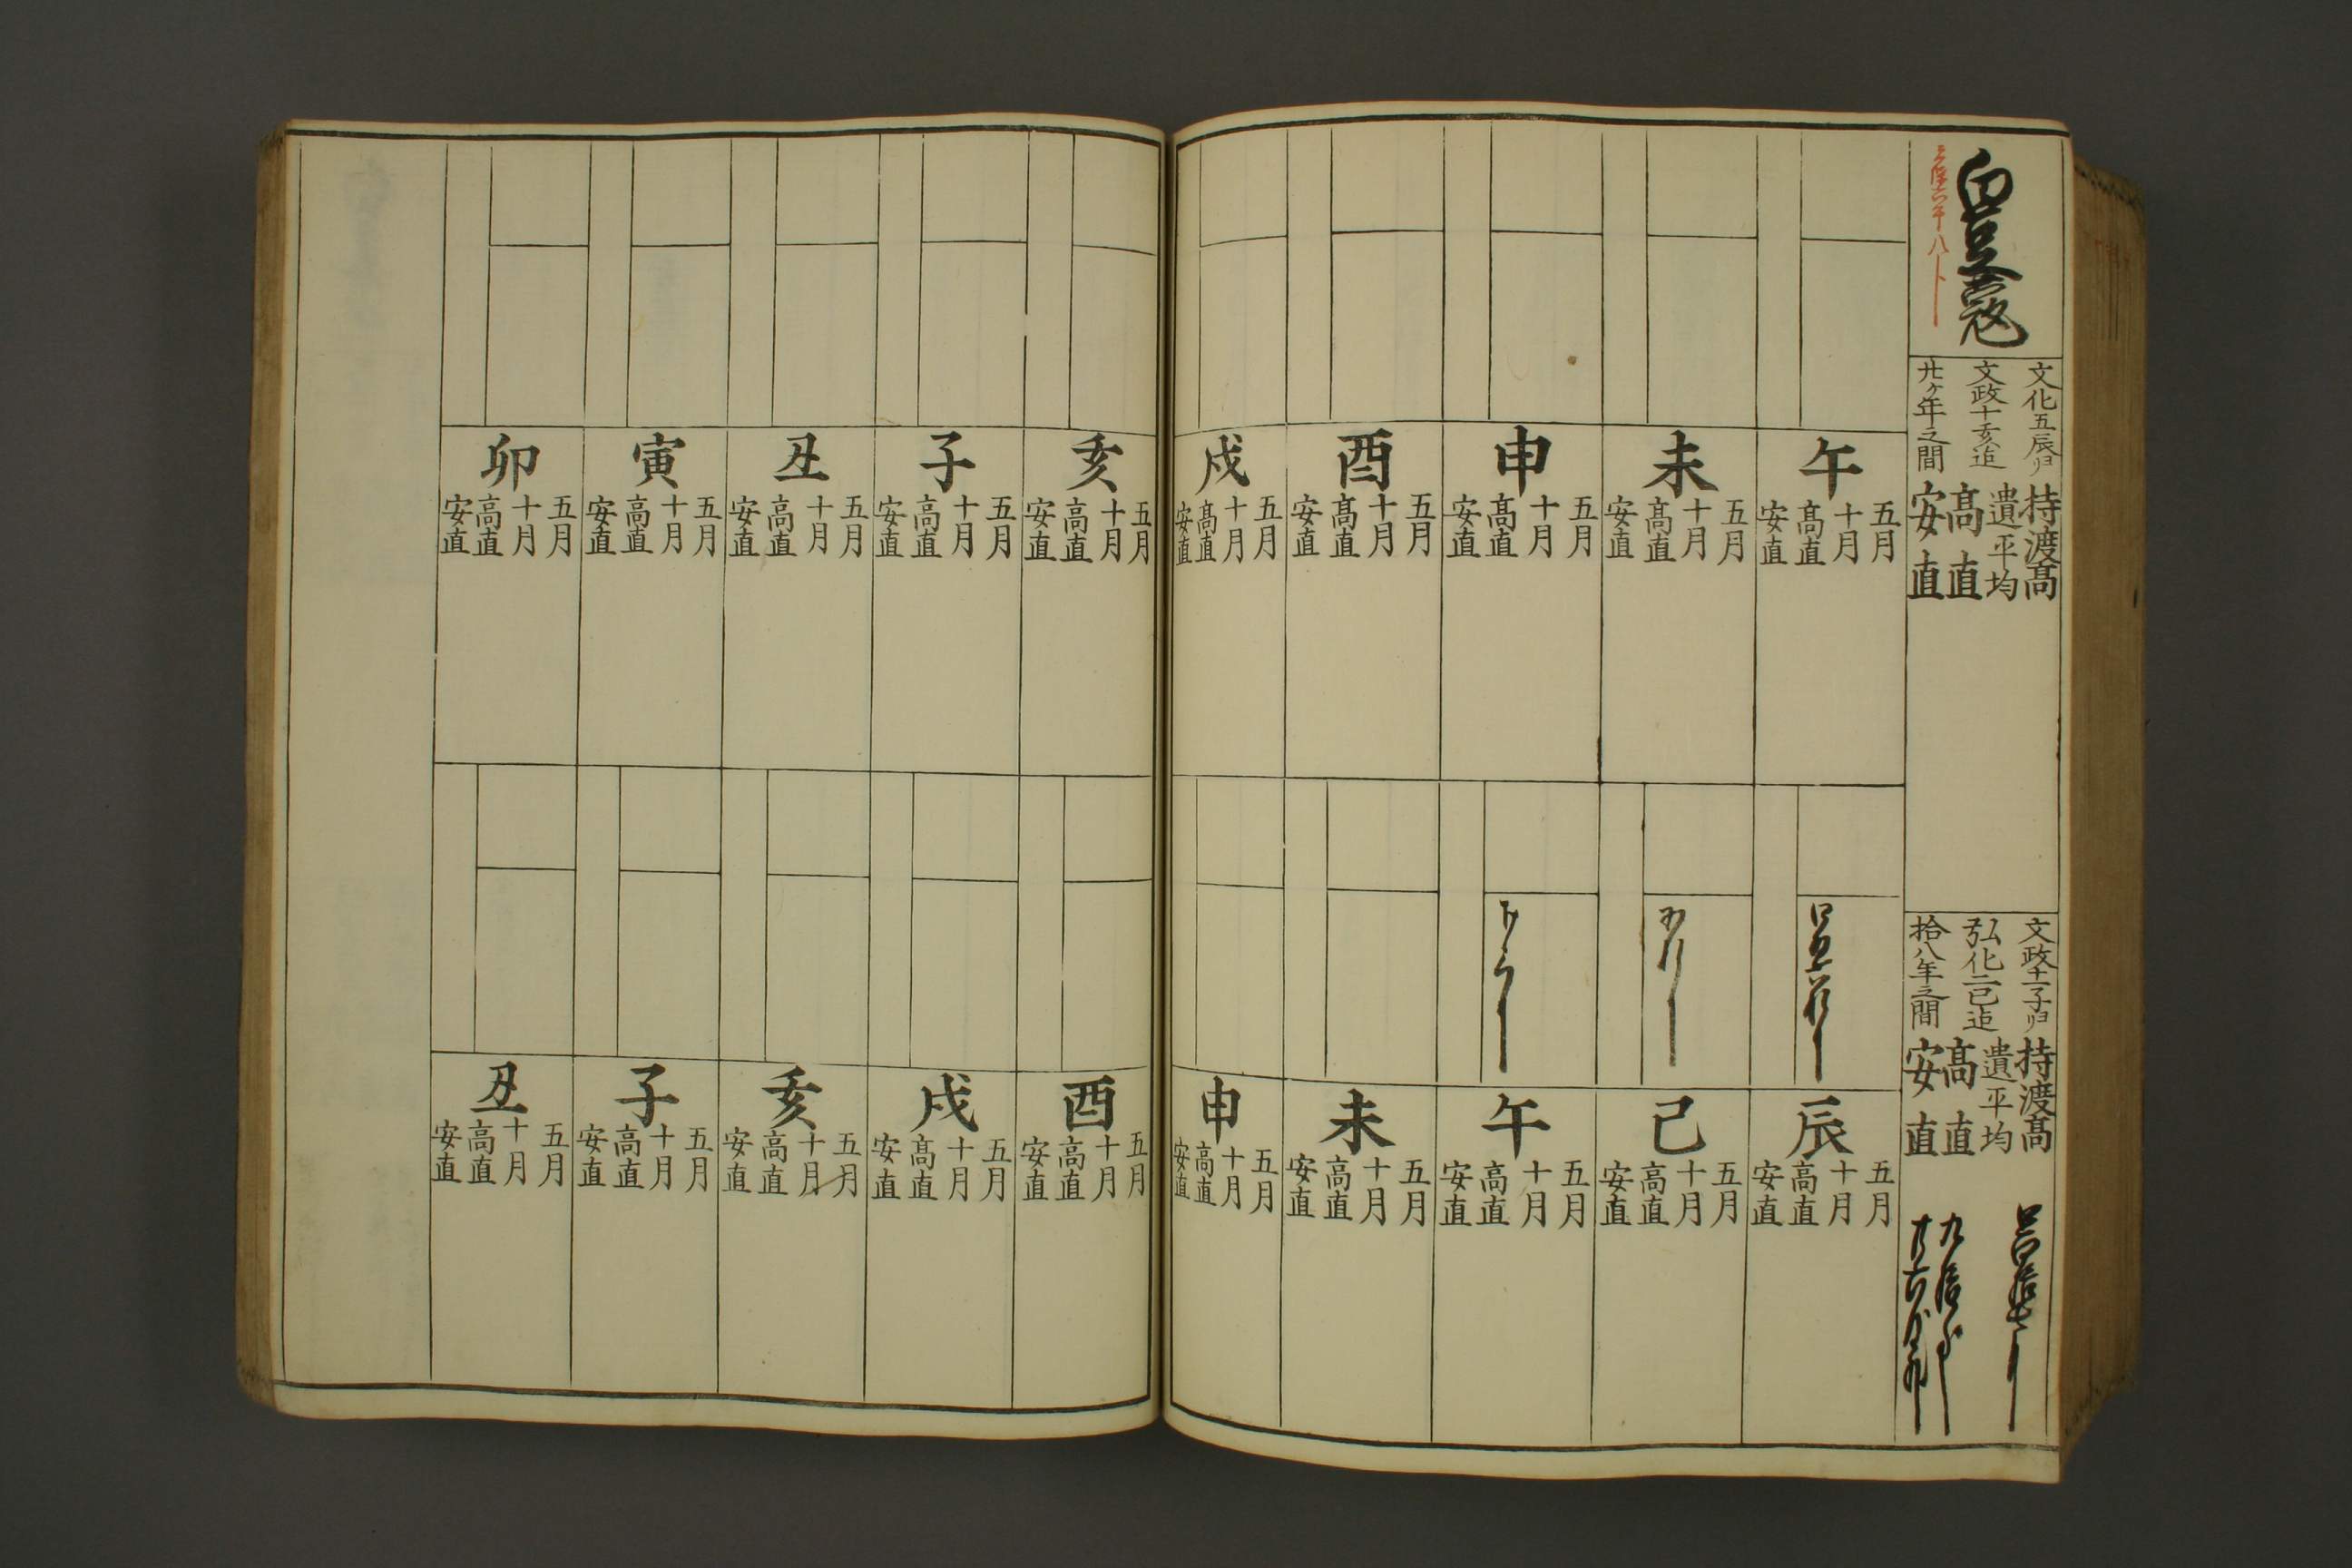 白豆蔻
文化五辰ゟ
文政十亥迠
廿ヶ年之間
持渡髙
遣平均
髙直
安直
文政十一子ゟ
弘化二巳迠
拾八年之間
持渡髙
遣平均
髙直
安直
午
五月
十月
髙直
安直
未
五月
十月
髙直
安直
申
五月
十月
髙直
安直
酉
五月
十月
髙直
安直
戌
五月
十月
髙直
安直
辰
五月
十月
髙直
安直
巳
五月
十月
髙直
安直
午
五月
十月
髙直
安直
未
五月
十月
髙直
安直
申
五月
十月
髙直
安直
亥
五月
十月
髙直
安直
子
五月
十月
髙直
安直
丑
五月
十月
髙直
安直
寅
五月
十月
髙直
安直
卯
五月
十月
髙直
安直
酉
五月
十月
髙直
安直
戌
五月
十月
髙直
安直
亥
五月
十月
髙直
安直
子
五月
十月
髙直
安直
丑
五月
十月
髙直
安直